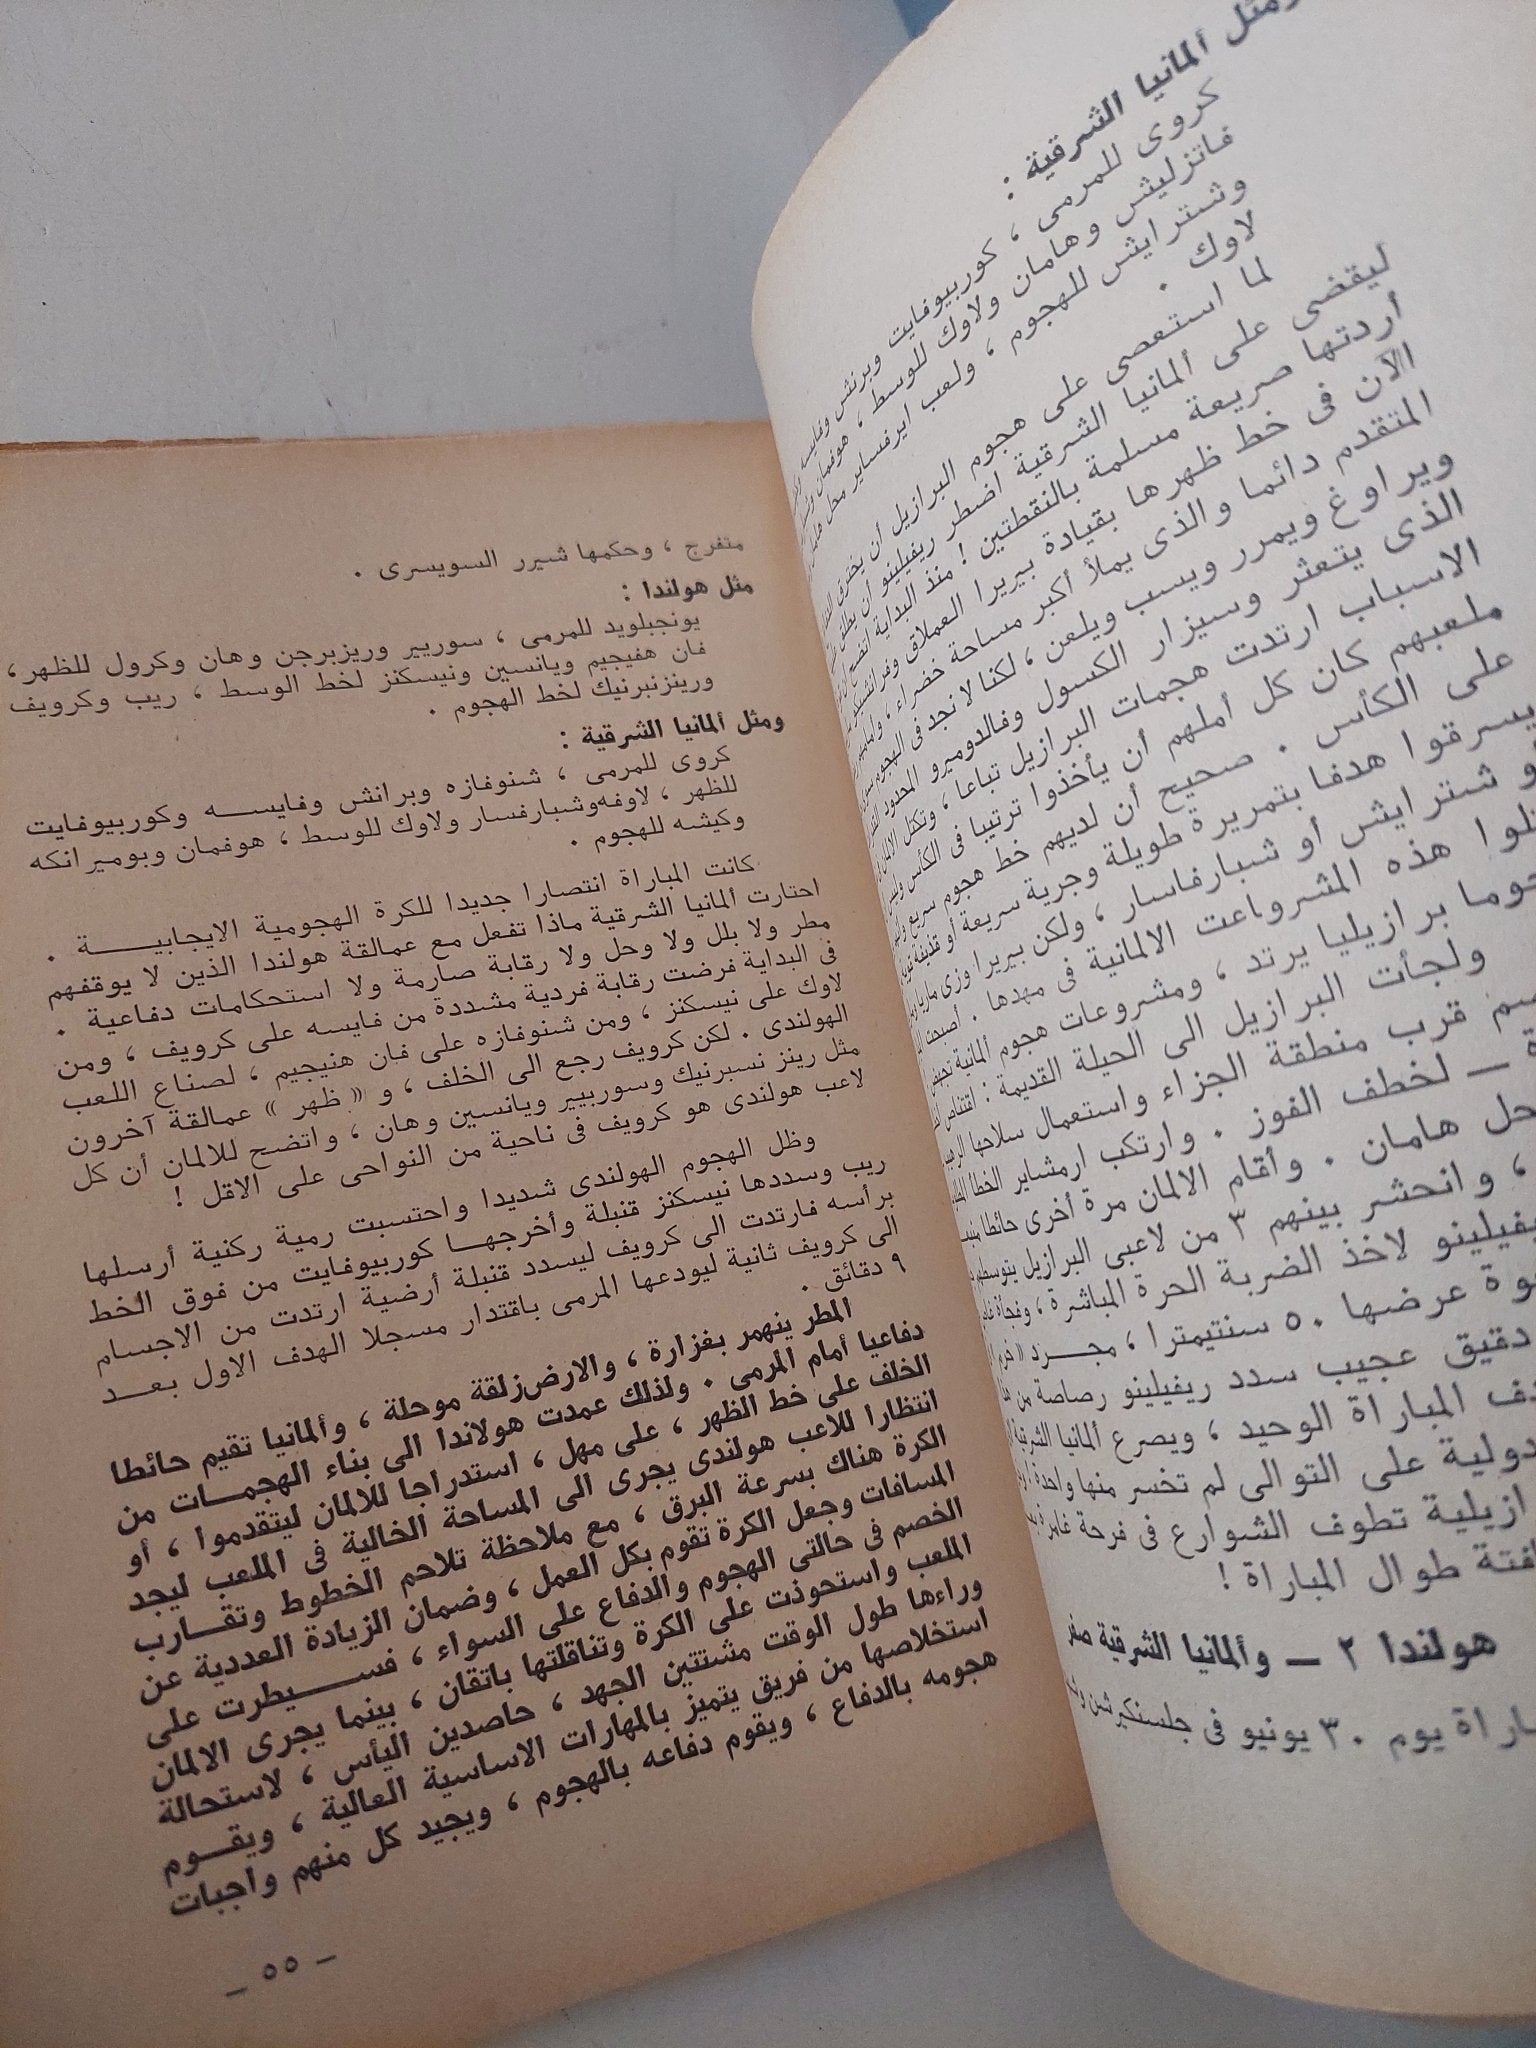 ومثل ألمانيا الشرقية :
كروى للمرمى ، كوربيوفايت وبرنش وفايسه
فاتزليش وهامان ولاوك للوسط ، هوفمان
وشترايش للهجوم ، ولعب ايرفساير محل
لاوك .
لما استعصى على هجوم البرازيل أن يخترق
ليقضى على ألمانيا الشرقية اضطر ريفيلينو أن يطلق
أردتها صريعة مسلمة بالنقطتين ! منذ البداية
الآن فى خط ظهرها بقيادة بيريرا العملاق
المتقدم دائما والذى يملأ أكبر مساحة خضراء ،
ويراوغ ويمرر ويسب ويلعن ، لكنا لا نجد فى الهجوم
الذى يتعثر وسيزار الكسول وفالدوميرو المحدود
الاسباب ارتدت هجمات البرازيل تباعا ، وتكتل الالمان
ملعبهم كان كل أملهم أن يأخذوا ترتيبا فى الكأس وليس
على الكأس . صحيح أن لديهم خط هجوم سريع
يسرقوا هدفا بتمريرة طويلة وجرية سريعة أو قذيفة
شترايش أو شبارفاسار ، ولكن بيريرا وزى ماريا
هذه المشروعات الالمانية فى مهدها . أصبحت
برازيليا يرتد ، ومشروعات هجوم ألمانية
ولجأت البرازيل الى الحيلة القديمة : اقتناص
قرب منطقة الجزاء واستعمال سلاحها
— لخطف الفوز . وارتكب ارمشاير الخطأ
هامان . وأقام الالمان مرة أخرى حائطا
، وانحشر بينهم ٣ من لاعبى البرازيل
لاخذ الضربة الحرة المباشرة ، وفجأة
عرضها ٥٠ سنتيمترا ، مجرد
دقيق عجيب سدد ريفيلينو رصاصة من
المباراة الوحيد ، ويصرع ألمانيا الشرقية
دولية على التوالى لم تخسر منها واحدة !
تطوف الشوارع فى فرحة غامرة
طوال المباراة !
هولندا ٢ — وألمانيا الشرقية صفر
يوم ٣٠ يونيو فى جلسنكيرشن
متفرج ، وحكمها شيرر السويسرى .
مثل هولندا :
يونجبلويد للمرمى ، سوربير وريزبرجن وهان وكرول للظهر ،
فان هفيجيم ويانسين ونيسكنز لخط الوسط ، ريب وكرويف
ورينزنبرنيك لخط الهجوم .
ومثل ألمانيا الشرقية :
كروى للمرمى ، شنوفازه وبرانش وفايسه وكوربيوفايت
للظهر ، لاوفه وشبارفسار ولاوك للوسط ، هوفمان وبوميرانكه
وكيشه للهجوم .
كانت المباراة انتصارا جديدا للكرة الهجومية الايجابية .
احتارت ألمانيا الشرقية ماذا تفعل مع عمالقة هولندا الذين لا يوقفهم
مطر ولا بلل ولا وحل ولا رقابة صارمة ولا استحكامات دفاعية .
فى البداية فرضت رقابة فردية مشددة من فايسه على كرويف ، ومن
لاوك على نيسكنز ، ومن شنوفازه على فان هنيجيم ، لصناع اللعب
الهولندى . لكن كرويف رجع الى الخلف ، و « ظهر » عمالقة آخرون
مثل رينز نسبرنيك وسوربيير ويانسين وهان ، واتضح للالمان أن كل
لاعب هولندى هو كرويف فى ناحية من النواحى على الاقل !
وظل الهجوم الهولندى شديدا واحتسبت رمية ركنية أرسلها
ريب وسددها نيسكنز قنبلة وأخرجها كوربيوفايت من فوق الخط
برأسه فارتدت الى كرويف ليسدد قنبلة أرضية ارتدت من الاجسام
الى كرويف ثانية ليودعها المرمى باقتدار مسجلا الهدف الاول بعد
٩ دقائق .
المطر ينهمر بغزارة ، والارض زلقة موحلة ، وألمانيا تقيم حائطا
دفاعيا أمام المرمى . ولذلك عمدت هولاندا الى بناء الهجمات من
الخلف على خط الظهر ، على مهل ، استدراجا للالمان ليتقدموا ، أو
انتظارا للاعب هولندى يجرى الى المساحة الخالية فى الملعب ليجد
الكرة هناك بسرعة البرق ، مع ملاحظة تلاحم الخطوط وتقارب
المسافات وجعل الكرة تقوم بكل العمل ، وضمان الزيادة العددية عن
الخصم فى حالتى الهجوم والدفاع على السواء ، فسيطرت على
الملعب واستحوذت على الكرة وتناقلتها باتقان ، بينما يجرى الالمان
وراءها طول الوقت مشتتين الجهد ، حاصدين اليأس ، لاستحالة
استخلاصها من فريق يتميز بالمهارات الاساسية العالية ، ويقوم
هجومه بالدفاع ، ويقوم دفاعه بالهجوم ، ويجيد كل منهم واجبات
— ٥٥ —